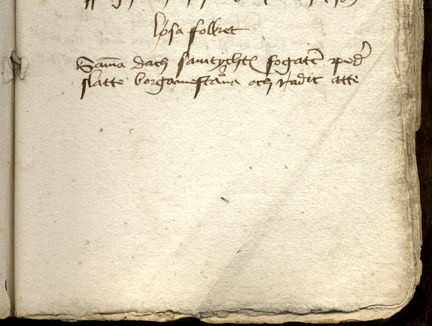 lösa folket
Sama dach samtychte fogaten peder
slatte borgamestana och radit atte